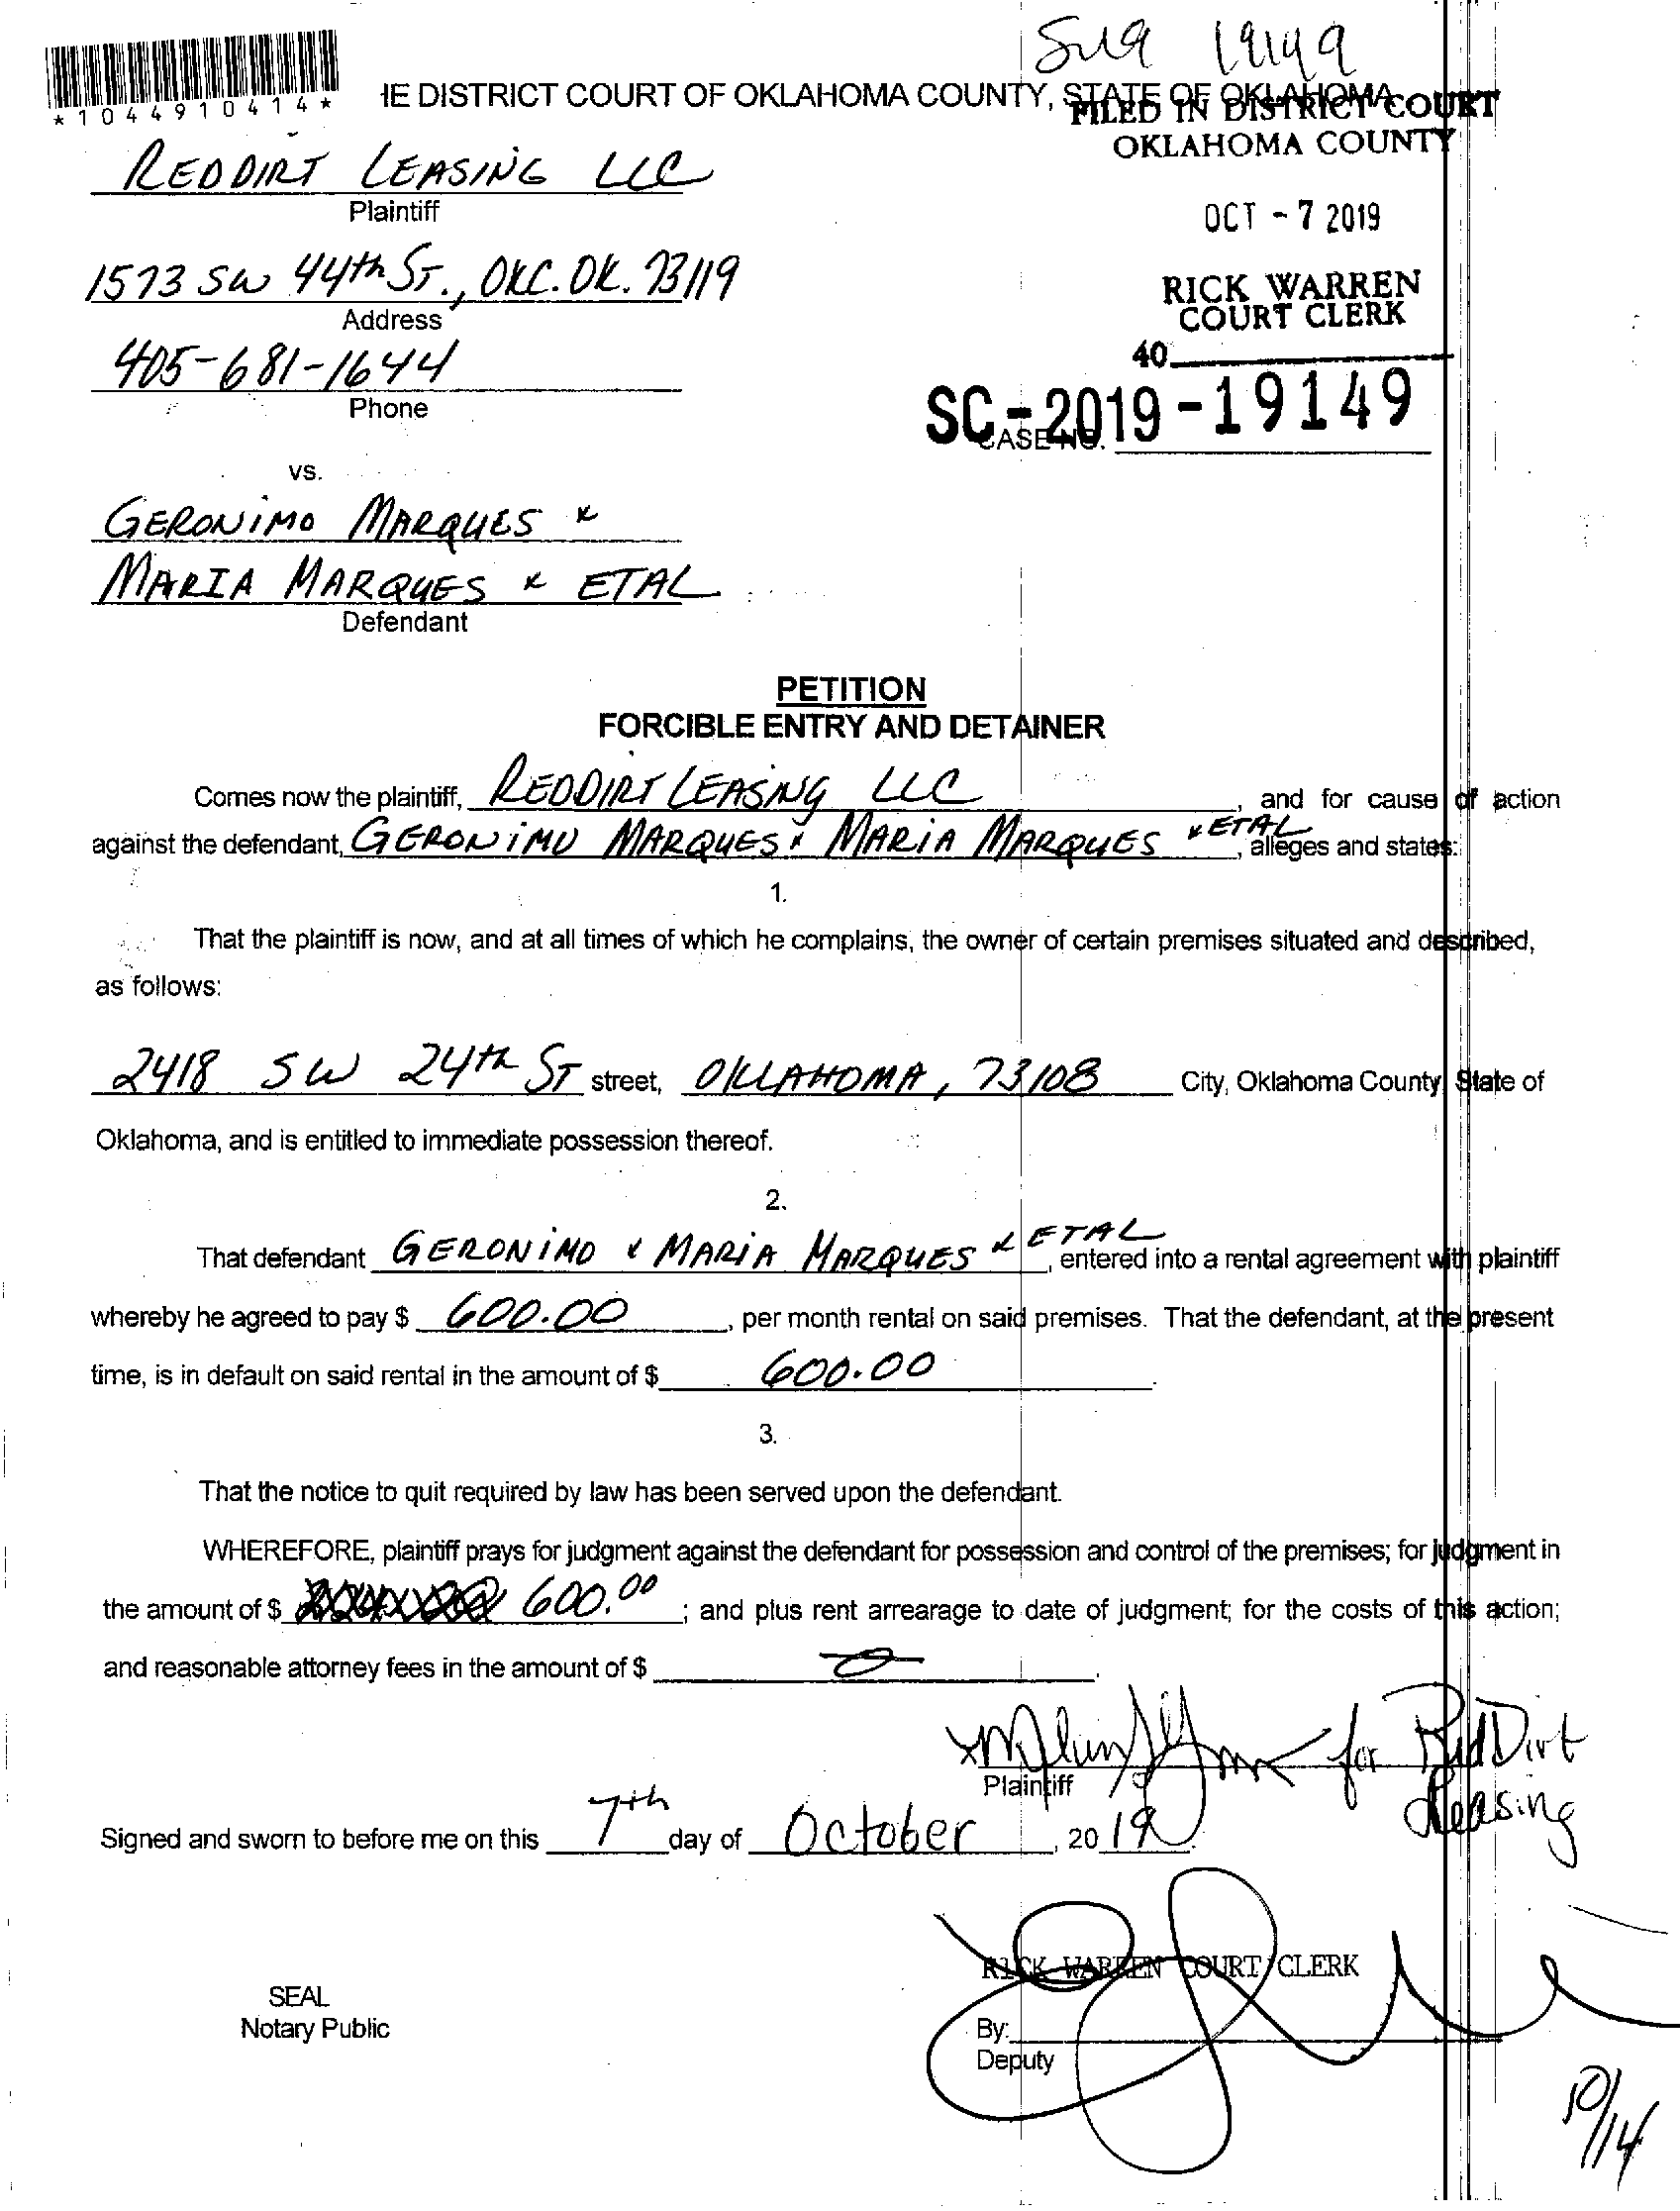 19149
*1044910414*
HE DISTRICT COURT OF OKLAHOMA COUNTY, STATE OF OKLAHOMA
FILED IN DISTRICT COURT
OKLAHOMA COUNTY
REDDIRT LEASING LLC
Plaintiff
OCT - 7 2019
1573 SW 44th ST., OKC. OK. 73119
Address
RICK WARREN
COURT CLERK
405-681-1644
Phone
40
SC-2019-19149
CASE NO.
vs.
GERONIMO MARQUES &
MARIA MARQUES & ETAL
Defendant
PETITION
FORCIBLE ENTRY AND DETAINER
Comes now the plaintiff, REDDIRT LEASING LLC, and for cause of action
against the defendant, GERONIMO MARQUES & MARIA MARQUES & ETAL, alleges and states:
1.
That the plaintiff is now, and at all times of which he complains, the owner of certain premises situated and described,
as follows:
2418 SW 24th ST street, OKLAHOMA, 73108 City, Oklahoma County, State of
Oklahoma, and is entitled to immediate possession thereof.
2.
That defendant GERONIMO & MARIA MARQUES & ETAL, entered into a rental agreement with plaintiff
whereby he agreed to pay $ 600.00, per month rental on said premises. That the defendant, at the present
time, is in default on said rental in the amount of $ 600.00.
3.
That the notice to quit required by law has been served upon the defendant.
WHEREFORE, plaintiff prays for judgment against the defendant for possession and control of the premises; for judgment in
the amount of $ 600.00; and plus rent arrearage to date of judgment; for the costs of this action;
and reasonable attorney fees in the amount of $ 0.
for Red Dirt
Leasing
Plaintiff
Signed and sworn to before me on this 7th day of October, 2019.
RICK WARREN COURT CLERK
SEAL
Notary Public
By:
Deputy
10/14